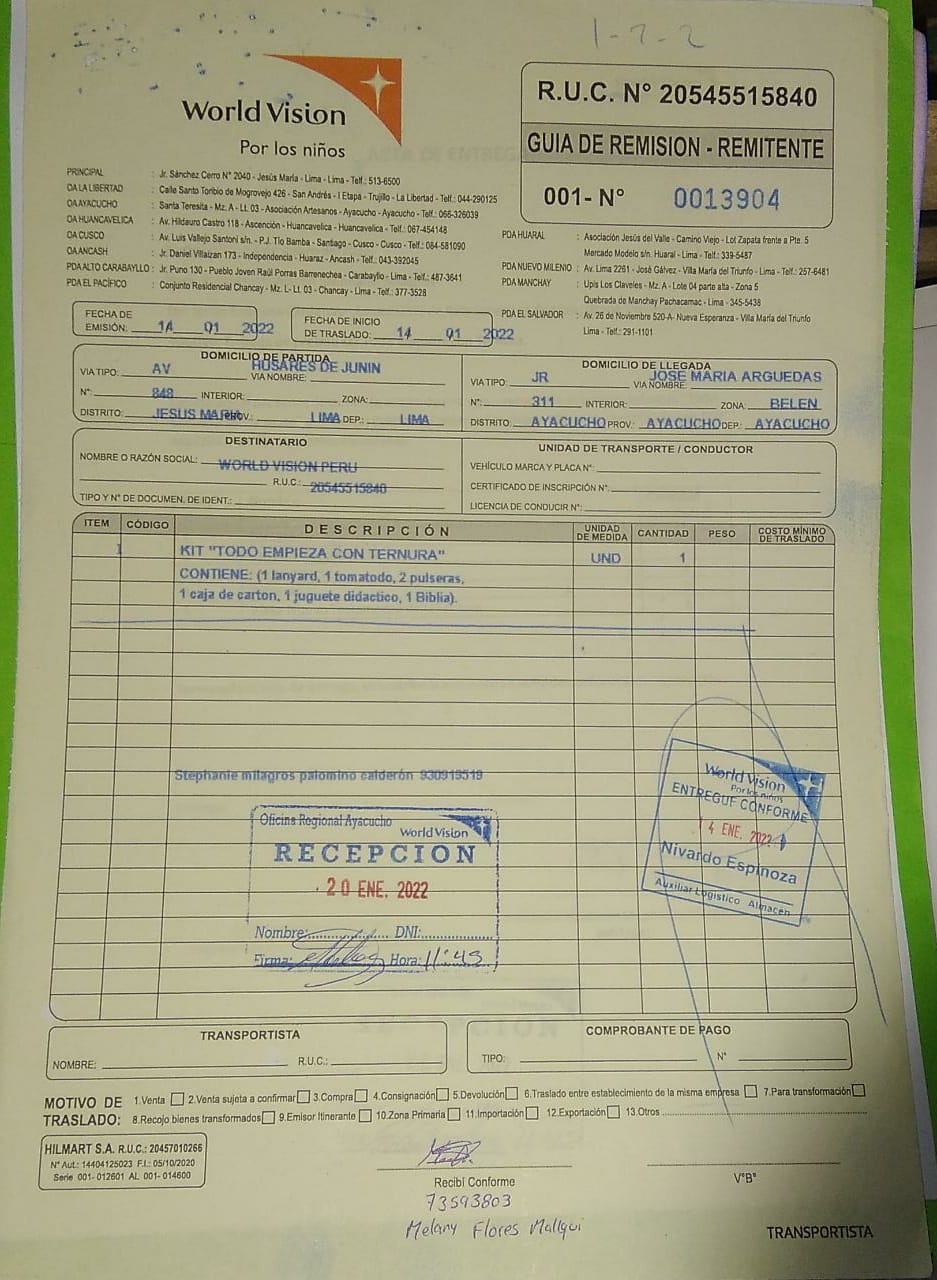 1-7-2
World Vision
Por los niños
R.U.C. N° 20545515840
GUIA DE REMISION - REMITENTE
001- N° 0013904
PRINCIPAL : Jr. Sánchez Cerro N° 2040 - Jesús María - Lima - Lima - Telf.: 513-6500
OA LA LIBERTAD : Calle Santo Toribio de Mogrovejo 426 - San Andrés - I Etapa - Trujillo - La Libertad - Telf.: 044-290125
OA AYACUCHO : Santa Teresita - Mz. A - Lt. 03 - Asociación Artesanos - Ayacucho - Ayacucho - Telf.: 066-326039
OA HUANCAVELICA : Av. Hildauro Castro 118 - Ascención - Huancavelica - Huancavelica - Telf.: 067-454148
OA CUSCO : Av. Luis Vallejo Santoni s/n. - P.J. Tío Bamba - Santiago - Cusco - Cusco - Telf.: 084-581090
OA ANCASH : Jr. Daniel Villaizan 173 - Independencia - Huaraz - Ancash - Telf.: 043-392045
PDA ALTO CARABAYLLO : Jr. Puno 130 - Pueblo Joven Raúl Porras Barrenechea - Carabayllo - Lima - Telf.: 487-3641
PDA EL PACÍFICO : Conjunto Residencial Chancay - Mz. L- Lt. 03 - Chancay - Lima - Telf.: 377-3528
PDA HUARAL : Asociación Jesús del Valle - Camino Viejo - Lot Zapata frente a Pte. 5
Mercado Modelo s/n. Huaral - Lima - Telf.: 339-5487
PDA NUEVO MILENIO : Av. Lima 2261 - José Gálvez - Villa María del Triunfo - Lima - Telf.: 257-6481
PDA MANCHAY : Upis Los Claveles - Mz. A - Lote 04 parte alta - Zona 5
Quebrada de Manchay Pachacamac - Lima - 345-5438
PDA EL SALVADOR : Av. 26 de Noviembre 520-A- Nueva Esperanza - Villa María del Triunfo
Lima - Telf.: 291-1101
FECHA DE EMISIÓN: 14 01 2022
FECHA DE INICIO DE TRASLADO: 14 01 2022
DOMICILIO DE PARTIDA
VIA TIPO: AV VIA NOMBRE: HUSARES DE JUNIN
N°: 848 INTERIOR: ZONA:
DISTRITO: JESUS MARIA PROV.: LIMA DEP.: LIMA
DOMICILIO DE LLEGADA
VIA TIPO: JR VIA NOMBRE: JOSE MARIA ARGUEDAS
N°: 311 INTERIOR: ZONA: BELEN
DISTRITO: AYACUCHO PROV.: AYACUCHO DEP.: AYACUCHO
DESTINATARIO
NOMBRE O RAZÓN SOCIAL: WORLD VISION PERU
R.U.C.: 20545515840
TIPO Y N° DE DOCUMEN. DE IDENT.:
UNIDAD DE TRANSPORTE / CONDUCTOR
VEHÍCULO MARCA Y PLACA N°:
CERTIFICADO DE INSCRIPCIÓN N°:
LICENCIA DE CONDUCIR N°:
ITEM CÓDIGO DESCRIPCIÓN UNIDAD DE MEDIDA CANTIDAD PESO COSTO MÍNIMO DE TRASLADO
1 KIT "TODO EMPIEZA CON TERNURA" UND 1
CONTIENE: (1 lanyard, 1 tomatodo, 2 pulseras,
1 caja de carton, 1 juguete didactico, 1 Biblia).
Stephanie milagros palomino calderón 930919519
World Vision
Por los niños
ENTREGUE CONFORME
14 ENE. 2022
Nivardo Espinoza
Auxiliar Logistico Almacen
Oficina Regional Ayacucho
World Vision
RECEPCION
20 ENE. 2022
Nombre: DNI:
Firma: Hora: 11:45
TRANSPORTISTA
NOMBRE: R.U.C.:
COMPROBANTE DE PAGO
TIPO: N°
MOTIVO DE TRASLADO:
1.Venta 2.Venta sujeta a confirmar 3.Compra 4.Consignación 5.Devolución 6.Traslado entre establecimiento de la misma empresa 7.Para transformación
8.Recojo bienes transformados 9.Emisor Itinerante 10.Zona Primaria 11.Importación 12.Exportación 13.Otros
HILMART S.A. R.U.C.: 20457010266
N° Aut.: 14404125023 F.I.: 05/10/2020
Serie 001- 012601 AL 001- 014600
Recibí Conforme
V°B°
73593803
Melany Flores Mallqui
TRANSPORTISTA